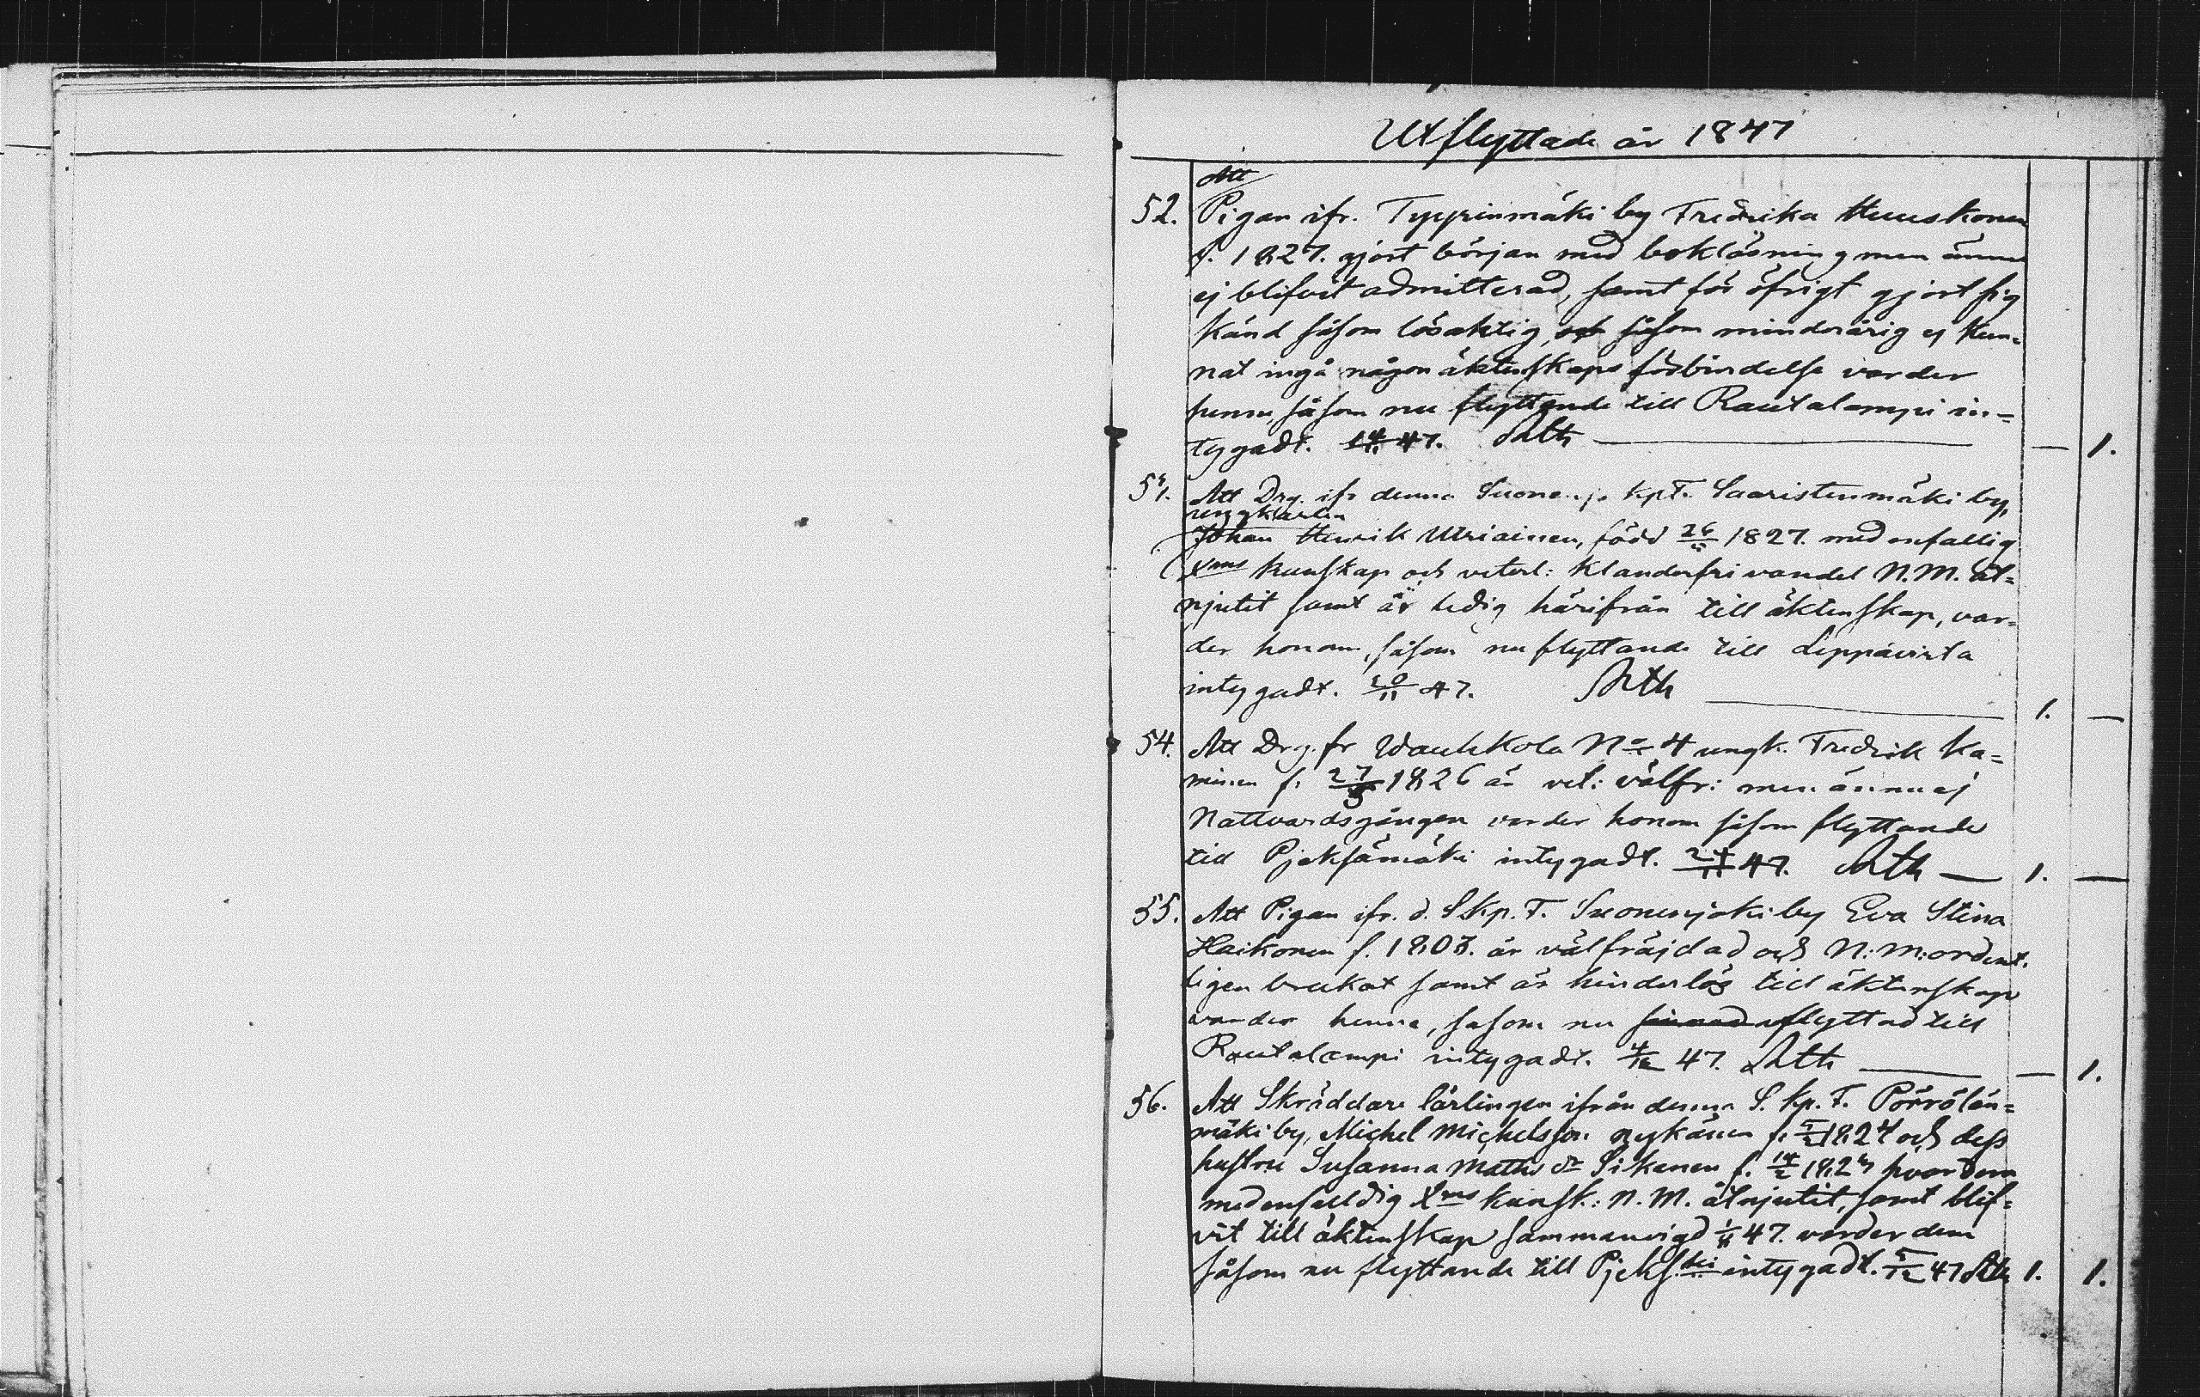 Utflyttade år 1847
Att
52. Pigan ifr. Typpinmäki by Fredrika Huuskonen
f. 1827. gjort början med bokläsning men ännu
ej blifvit admitterad, samt för öfrigt gjort sig
känd såsom lösaktig, och såsom minderårig ej kun-
nat ingå någon äktenskaps förbindelse varder
henne, såsom nu flyttande till Rautalampi in-
tygadt. 47. — — 1.
Att Drg. ifr denna kp. T. Saaristenmäki by,
ungkarlen
Johan Henrik född 26 1827. med enfallig
Xms kunskap och veterl: klanderfri vandel N.M. åt-
njutit samt är ledig härifrån till äktenskap, var-
der honom, såsom nu flyttande till Leppävirta
intygadt. 20/11 47. 1. —
54. Att Drg. fr Wauhkola No 4 ungk. Fredrik Ka-
minen f. 27/3 1826 är vet: välfr: men ännu ej
Nattvardsgången varder honom såsom flyttande
till Pjeksämäki intygadt. 24/11 47. — 1. —
55. Att Pigan ifr. d. S.kp. T. Suonenjoki by Eva Stina
Haikonen f. 1808. är välfräjdad och N:M: ordent-
ligen brukat samt är hinderlös till äktenskap
varder henne, såsom nu flyttad till
Rautalampi intygadt. 4/12 47. — — 1.
56. Att Skräddare lärlingen ifrån denna S. kp. T. Pörrölän-
mäki by, Michel Michelsson Nykänen f. 1824 och dess
hustru Susanna Matts dr Sikanen f. hvardera
med enfalldig Xms kunsk: N.M. åtnjutit, samt blif-
vit till äktenskap sammanvigd 1/11 47. varder dem
såsom nu flyttande till Pjeks:ki intygadt. 5/12 47 1. 1.